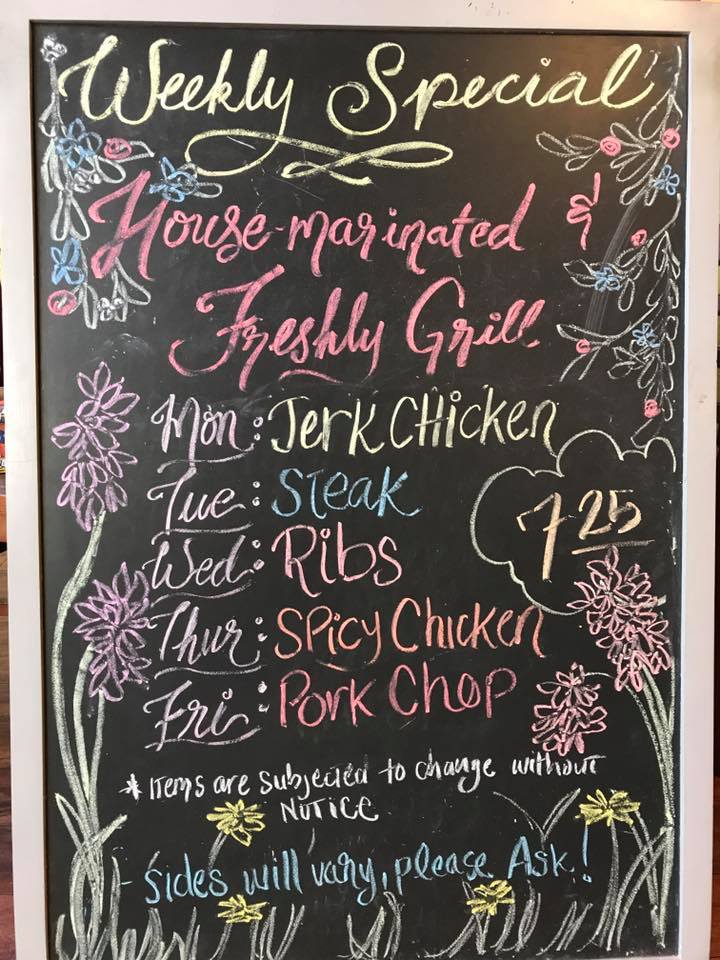 Weekly Special
House-marinated &
Freshly Grill
Mon: Jerk Chicken
Tue: Steak
Wed: Ribs
7 25
Thur: Spicy Chicken
Fri: Pork Chop
* Items are subjected to change without
Notice
- Sides will vary, please Ask!